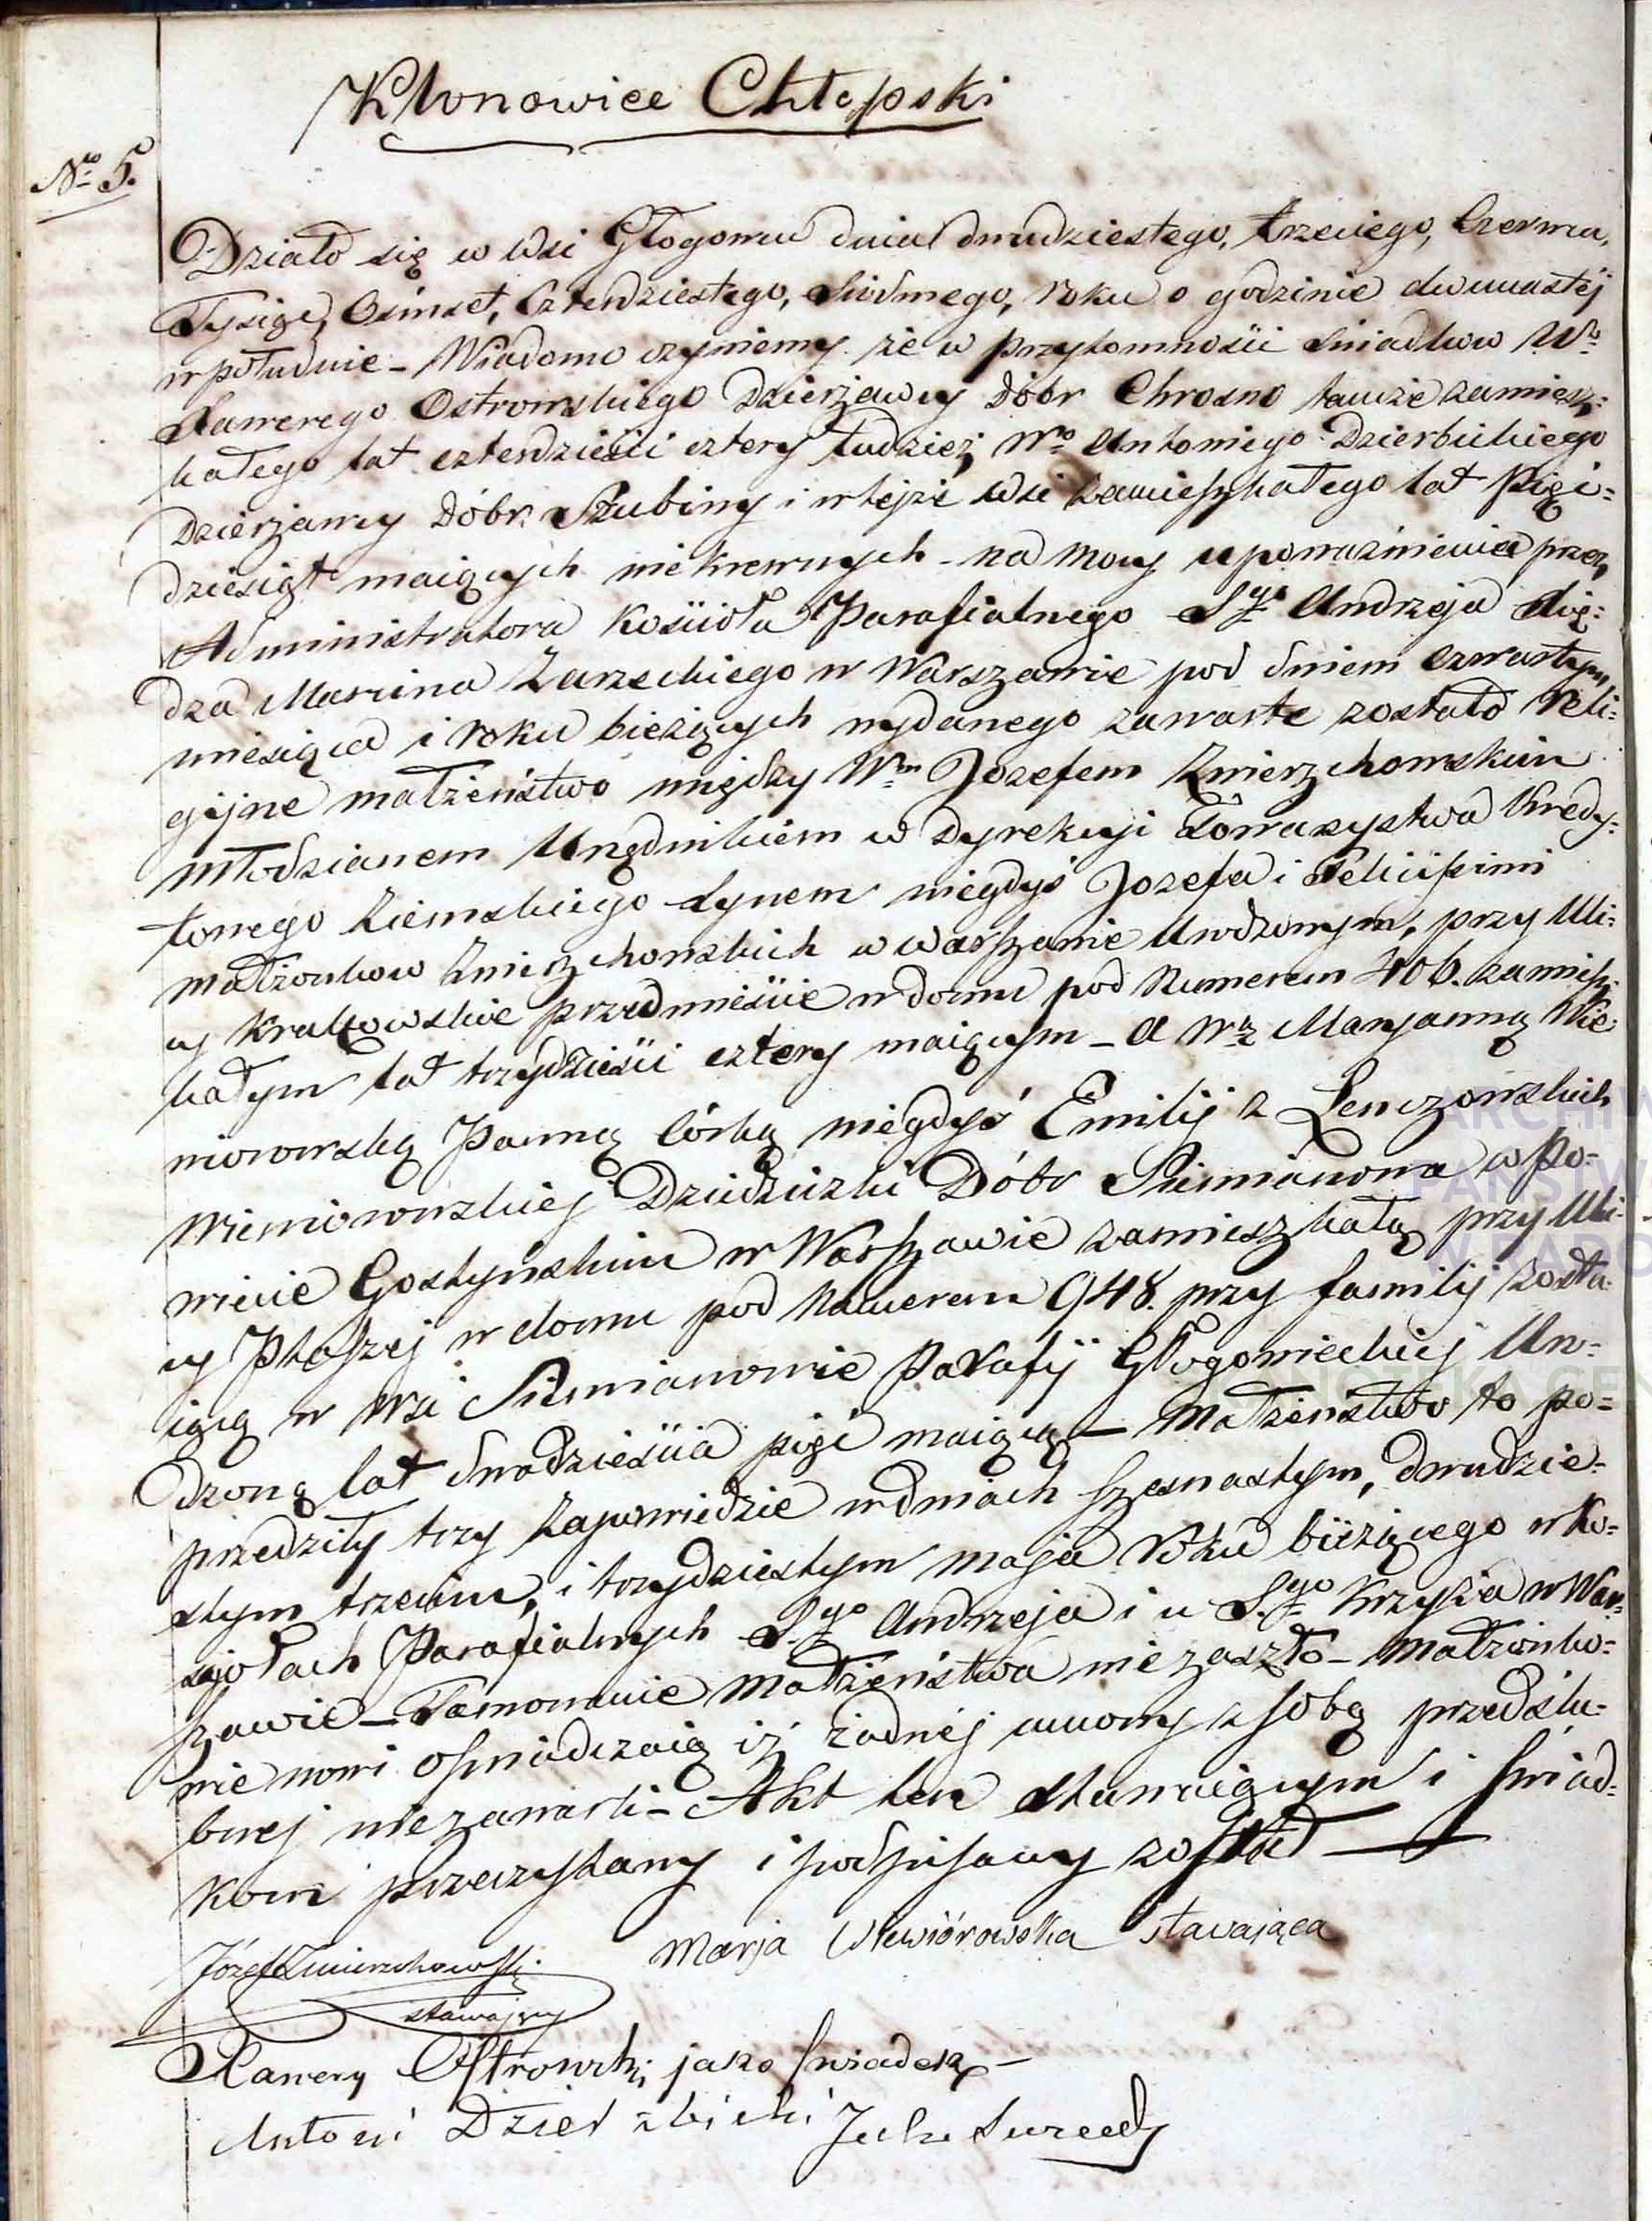 Klonowiec Chłopski
No 5.
Działo się w Wsi Głogowcu dnia dwudziestego, trzeciego, Czerwca,
Tysiąc, Osmset, Czterdziestego, Siódmego, roku o godzinie dwunastéj
w południe – Wiadomo czyniemy że w przytomności Swiadków Wo
Xawerego Ostrowskiego Dzierżawcy Dóbr Chrosno tamże zamiesz=
kałego lat czterdzieści cztery tudzież, Wo Antoniego Dzierbickiego
Dzierżawcy Dóbr i w tejże Wsi zamieszkałego lat Pięć=
dziesiąt maiących niekrewnych – na mocy upoważnienia przez
Administratora Kościoła Parafialnego Sgo Andrzeja Xię=
dza Marcina Zarzeckiego w Warszawie pod dniem czwartym
miesiąca i roku bieżących wydanego zawarte zostało Reli=
gijne małżeństwo między Wm Jozefem Zmierzchowskim
Młodzianem Urzędnikiem w Dyrekcyi Towarzystwa Kredy=
towego Ziemskiego Synem niegdyś Jozefa i Felicissimi
małżonkow Zmierzchowskich w Warszawie Urodzonym, przy Uli=
cy Krakowskie przedmieście w domu pod Numerem 406. zamiesz=
kałym lat trzydzieści cztery maiącym – a Wą Maryanną Wie=
wiorowską Panną córką niegdyś Emilij z Lenczowskich
Wiewiorowskiej Dziedziczki Dóbr Siemianowa w Po=
wiecie Gostyńskim w Warszawie zamieszkałą przy Uli=
cy Ptaszej w domu pod Numerem 948. przy familij zosta=
iącą w Wsi Siemianowie Parafij Głogowieckiej Uro=
dzoną lat dwadzieścia pięć maiącą – Małżeństwo to po=
przedziły trzy Zapowiedzie w dniach szesnastym, dwudzie=
stym trzecim, i trzydziestym maja roku bieżącego w Ko=
sciołach Parafialnych Sgo Andrzeja i u Sgo Krzyża w War=
szawie – Tamowanie małżeństwa nie zaszło – Małżonko=
wie nowi oświadczaią iż żadnéj umowy z sobą przedślu=
bnej niezawarli – Akt ten Stawaiącym i swiad=
kom przeczytany i podpisany został
Józef Zmierzchowski Marja Wiewiórowska stawająca
stawający
Xawery Ostrowski jako swiadek –
Antoni Dzierzbicki